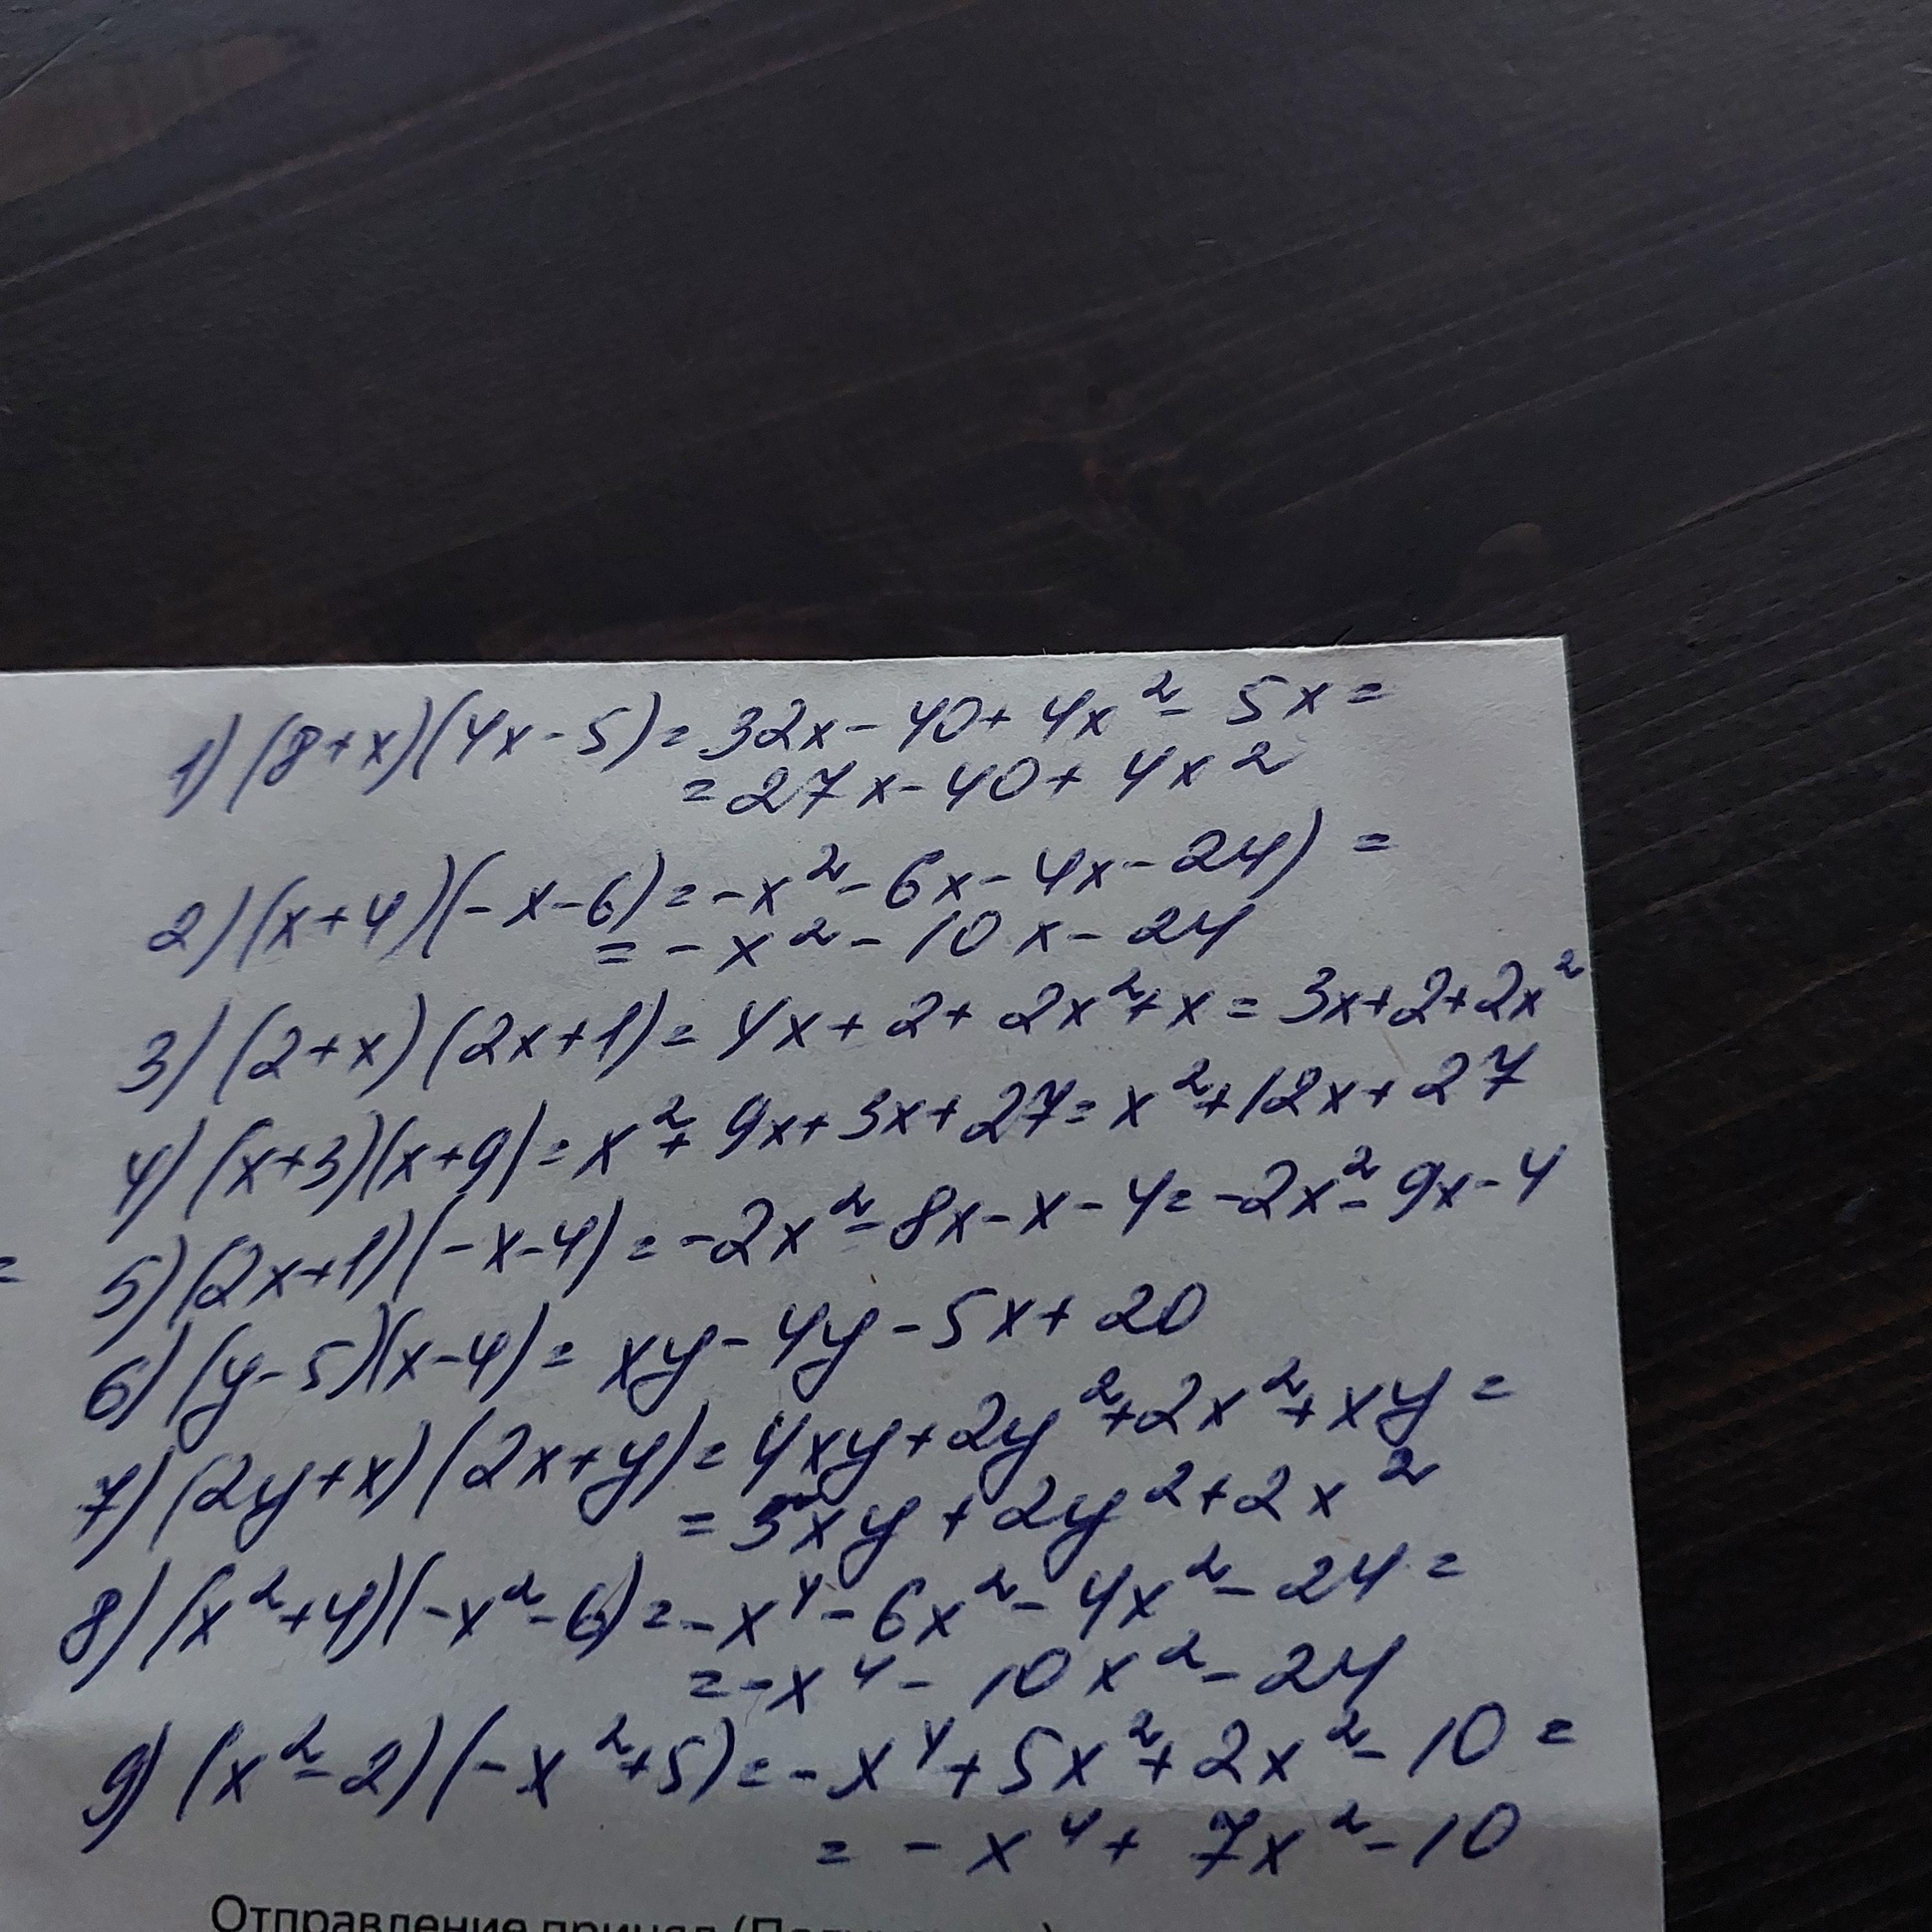 1) (8+x)(4x-5)= 32x-40+4x²-5x=
= 27x-40+4x²
2) (x+4)(-x-6)= -x²-6x-4x-24) =
= -x²-10x-24
3) (2+x)(2x+1)= 4x+2+2x²+x= 3x+2+2x²
4) (x+3)(x+9)= x²+9x+3x+27= x²+12x+27
=
5) (2x+1)(-x-4)= -2x²-8x-x-4= -2x²-9x-4
6) (y-5)(x-4)= xy-4y-5x+20
7) (2y+x)(2x+y)= 4xy+2y²+2x²+xy=
= 5xy+2y²+2x²
8) (x²+4)(-x²-6)= -x⁴-6x²-4x²-24=
= -x⁴-10x²-24
9) (x²-2)(-x²+5)= -x⁴+5x²+2x²-10=
= -x⁴+7x²-10
Отправление принял